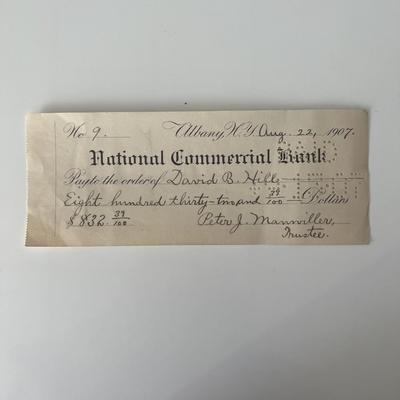 No 9. Albany, N.Y. Aug. 22, 1907.
National Commercial Bank
Pay to the order of David B. Hill
Eight hundred thirty-two and 39/100 Dollars
$832 39/100 Peter J. Mannviller,
Trustee.